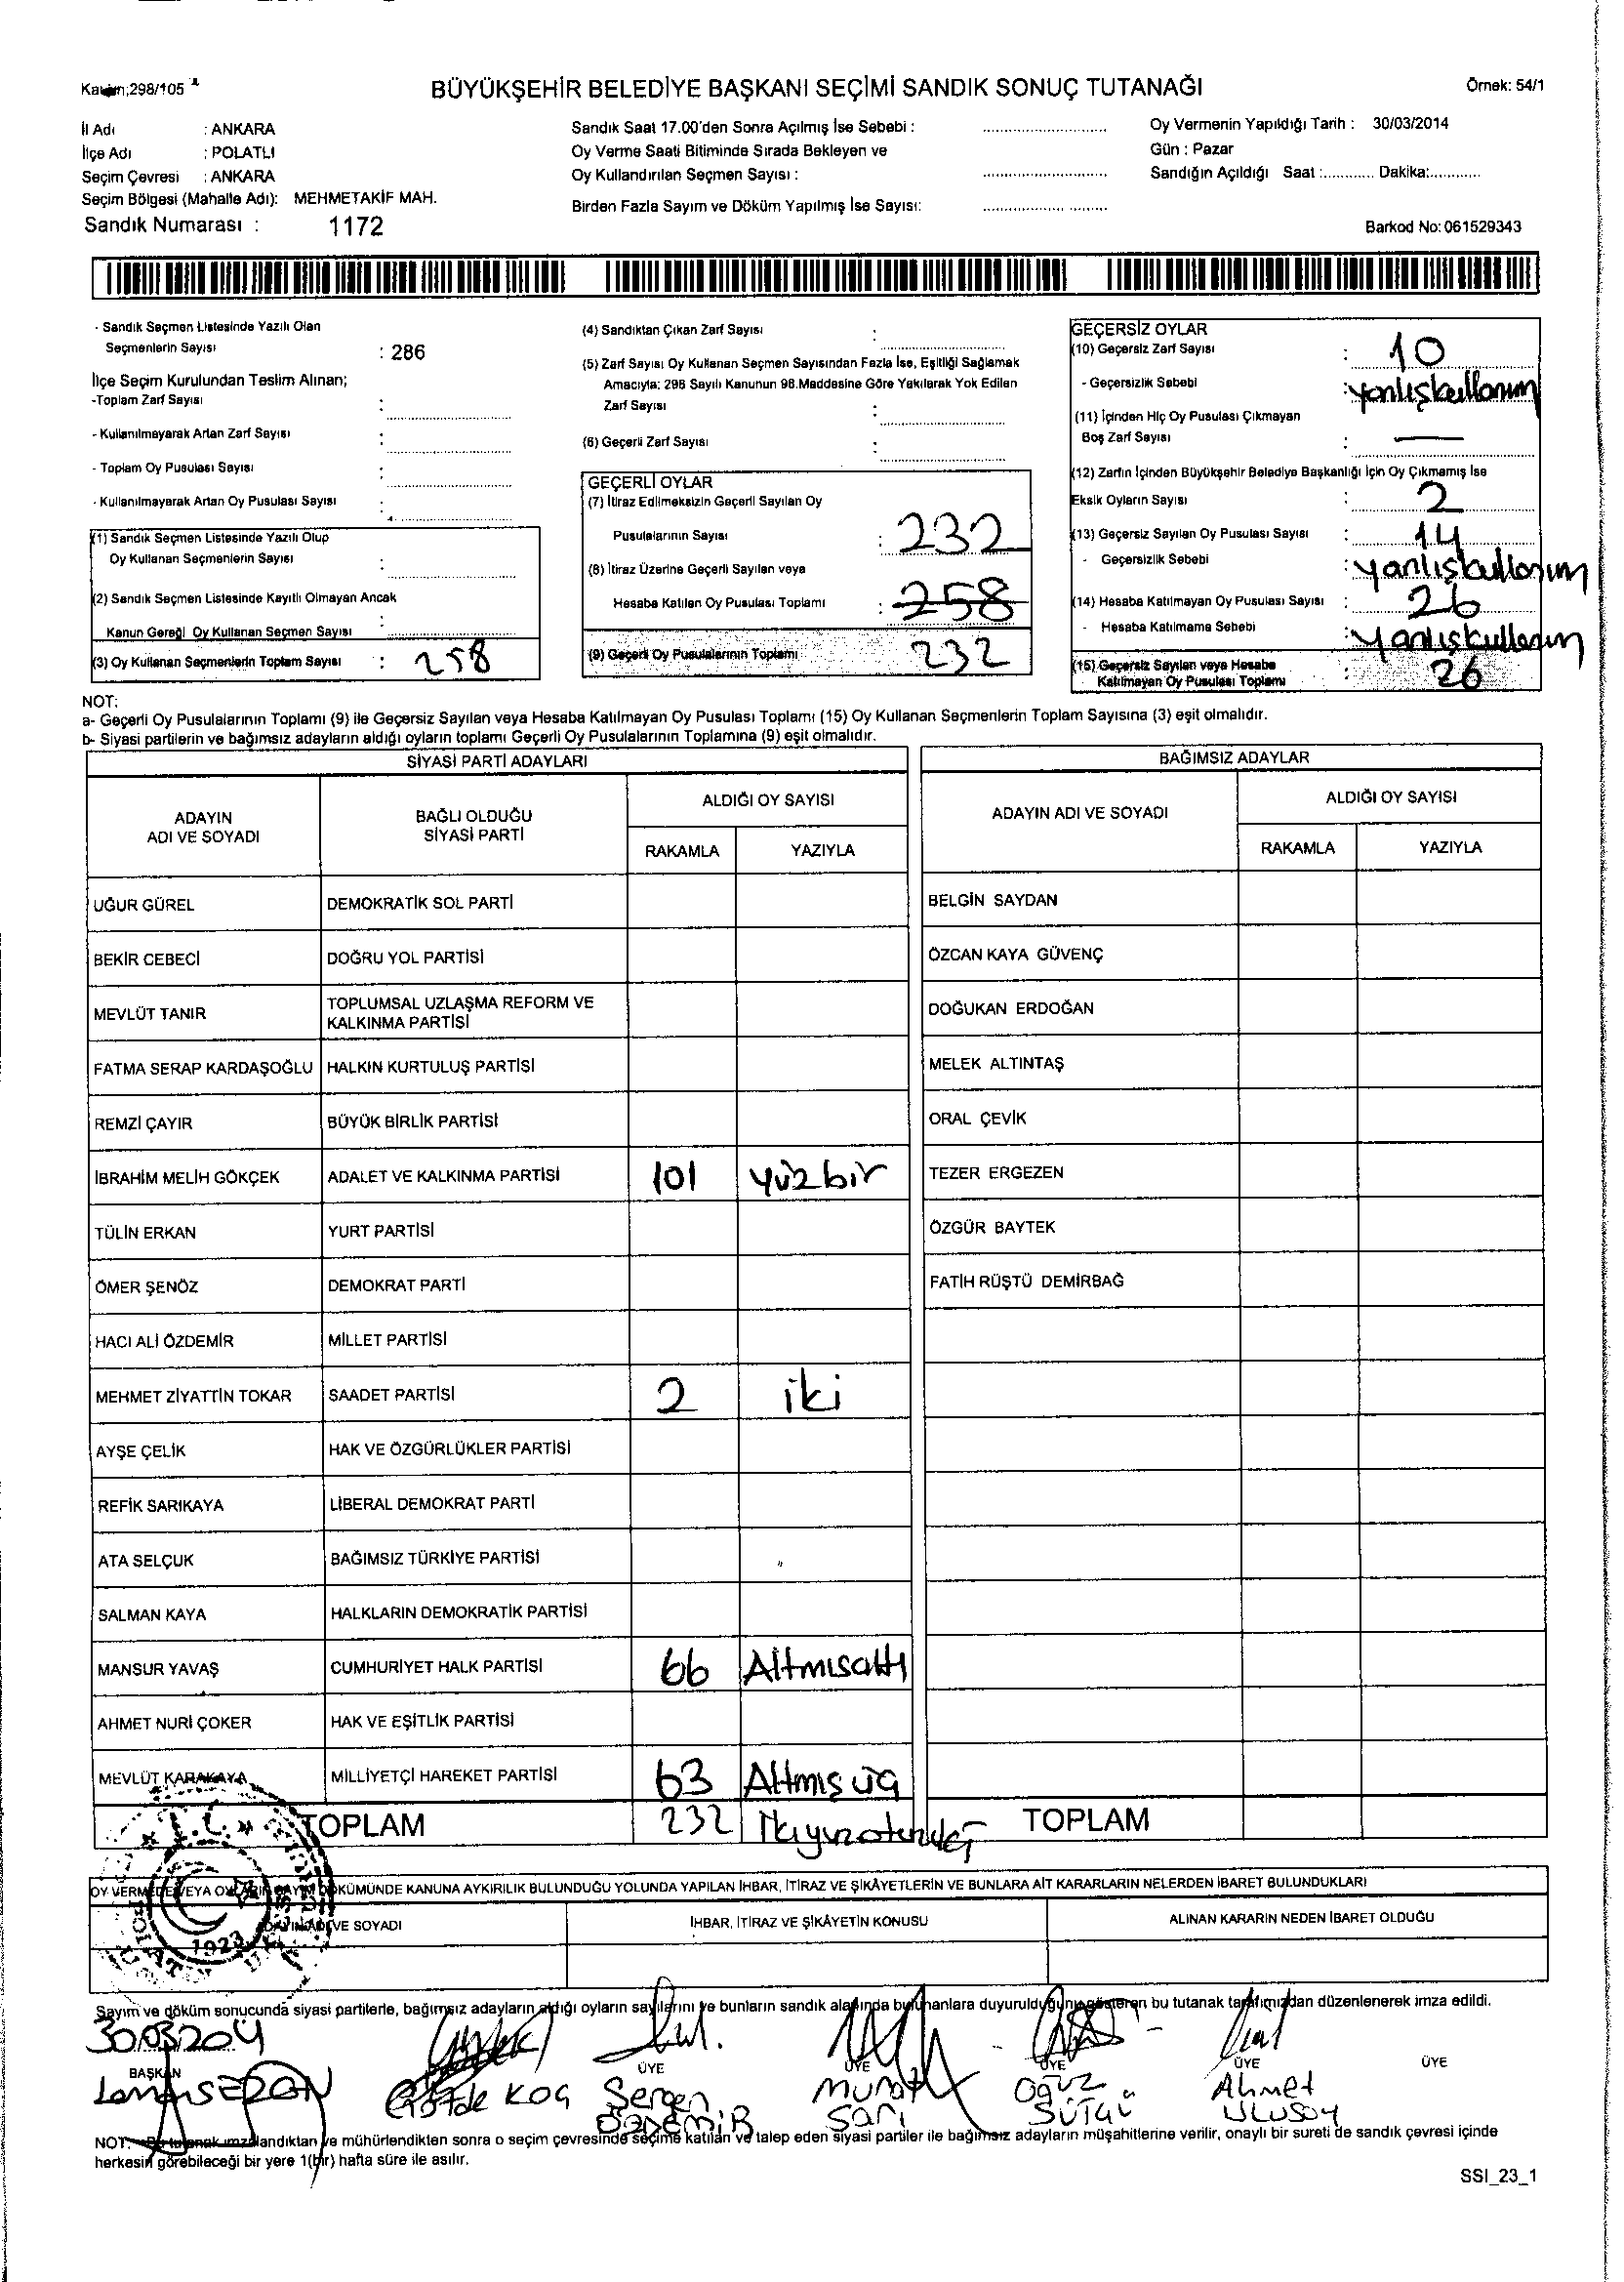 Kanun;298/105
BÜYÜKŞEHİR BELEDİYE BAŞKANI SEÇİMİ SANDIK SONUÇ TUTANAĞI
Örnek: 54/1
İl Adı : ANKARA
İlçe Adı : POLATLI
Seçim Çevresi : ANKARA
Seçim Bölgesi (Mahalle Adı): MEHMETAKİF MAH.
Sandık Numarası : 1172
Sandık Saat 17.00'den Sonra Açılmış İse Sebebi :
Oy Verme Saati Bitiminde Sırada Bekleyen ve
Oy Kullandırılan Seçmen Sayısı :
Birden Fazla Sayım ve Döküm Yapılmış İse Sayısı:
Oy Vermenin Yapıldığı Tarih : 30/03/2014
Gün : Pazar
Sandığın Açıldığı Saat :............ Dakika:............
Barkod No: 061529343
- Sandık Seçmen Listesinde Yazılı Olan
Seçmenlerin Sayısı : 286
İlçe Seçim Kurulundan Teslim Alınan;
-Toplam Zarf Sayısı :
- Kullanılmayarak Artan Zarf Sayısı :
- Toplam Oy Pusulası Sayısı :
- Kullanılmayarak Artan Oy Pusulası Sayısı :
(1) Sandık Seçmen Listesinde Yazılı Olup
Oy Kullanan Seçmenlerin Sayısı :
(2) Sandık Seçmen Listesinde Kayıtlı Olmayan Ancak
Kanun Gereği Oy Kullanan Seçmen Sayısı :
(3) Oy Kullanan Seçmenlerin Toplam Sayısı : 258
(4) Sandıktan Çıkan Zarf Sayısı :
(5) Zarf Sayısı Oy Kullanan Seçmen Sayısından Fazla İse, Eşitliği Sağlamak
Amacıyla; 298 Sayılı Kanunun 98.Maddesine Göre Yakılarak Yok Edilen
Zarf Sayısı :
(6) Geçerli Zarf Sayısı :
GEÇERLİ OYLAR
(7) İtiraz Edilmeksizin Geçerli Sayılan Oy
Pusulalarının Sayısı : 232
(8) İtiraz Üzerine Geçerli Sayılan veya
Hesaba Katılan Oy Pusulası Toplamı : 258
(9) Geçerli Oy Pusulalarının Toplamı : 232
GEÇERSİZ OYLAR
(10) Geçersiz Zarf Sayısı : 10
- Geçersizlik Sebebi : yanlış kullanım
(11) İçinden Hiç Oy Pusulası Çıkmayan
Boş Zarf Sayısı : —
(12) Zarfın İçinden Büyükşehir Belediye Başkanlığı İçin Oy Çıkmamış İse
Eksik Oyların Sayısı : 2
(13) Geçersiz Sayılan Oy Pusulası Sayısı : 14
- Geçersizlik Sebebi : yanlış kullanım
(14) Hesaba Katılmayan Oy Pusulası Sayısı : 26
- Hesaba Katılmama Sebebi : yanlış kullanım
(15) Geçersiz Sayılan veya Hesaba
Katılmayan Oy Pusulası Toplamı : 26
NOT:
a- Geçerli Oy Pusulalarının Toplamı (9) ile Geçersiz Sayılan veya Hesaba Katılmayan Oy Pusulası Toplamı (15) Oy Kullanan Seçmenlerin Toplam Sayısına (3) eşit olmalıdır.
b- Siyasi partilerin ve bağımsız adayların aldığı oyların toplamı Geçerli Oy Pusulalarının Toplamına (9) eşit olmalıdır.
SİYASİ PARTİ ADAYLARI
ADAYIN
ADI VE SOYADI
BAĞLI OLDUĞU
SİYASİ PARTİ
ALDIĞI OY SAYISI
RAKAMLA YAZIYLA
UĞUR GÜREL DEMOKRATİK SOL PARTİ
BEKİR CEBECİ DOĞRU YOL PARTİSİ
MEVLÜT TANIR TOPLUMSAL UZLAŞMA REFORM VE
KALKINMA PARTİSİ
FATMA SERAP KARDAŞOĞLU HALKIN KURTULUŞ PARTİSİ
REMZİ ÇAYIR BÜYÜK BİRLİK PARTİSİ
İBRAHİM MELİH GÖKÇEK ADALET VE KALKINMA PARTİSİ 101 yüzbir
TÜLİN ERKAN YURT PARTİSİ
ÖMER ŞENÖZ DEMOKRAT PARTİ
HACI ALİ ÖZDEMİR MİLLET PARTİSİ
MEHMET ZİYATTİN TOKAR SAADET PARTİSİ 2 iki
AYŞE ÇELİK HAK VE ÖZGÜRLÜKLER PARTİSİ
REFİK SARIKAYA LİBERAL DEMOKRAT PARTİ
ATA SELÇUK BAĞIMSIZ TÜRKİYE PARTİSİ
SALMAN KAYA HALKLARIN DEMOKRATİK PARTİSİ
MANSUR YAVAŞ CUMHURİYET HALK PARTİSİ 66 Altmışaltı
AHMET NURİ ÇOKER HAK VE EŞİTLİK PARTİSİ
MEVLÜT KARAKAYA MİLLİYETÇİ HAREKET PARTİSİ 63 Altmış üç
TOPLAM 232
BAĞIMSIZ ADAYLAR
ADAYIN ADI VE SOYADI
ALDIĞI OY SAYISI
RAKAMLA YAZIYLA
BELGİN SAYDAN
ÖZCAN KAYA GÜVENÇ
DOĞUKAN ERDOĞAN
MELEK ALTINTAŞ
ORAL ÇEVİK
TEZER ERGEZEN
ÖZGÜR BAYTEK
FATİH RÜŞTÜ DEMİRBAĞ
TOPLAM
OY VERMEDE VEYA OYLARIN SAYIM DÖKÜMÜNDE KANUNA AYKIRILIK BULUNDUĞU YOLUNDA YAPILAN İHBAR, İTİRAZ VE ŞİKÂYETLERİN VE BUNLARA AİT KARARLARIN NELERDEN İBARET BULUNDUKLARI
ADI VE SOYADI
İHBAR, İTİRAZ VE ŞİKÂYETİN KONUSU
ALINAN KARARIN NEDEN İBARET OLDUĞU
1923
Sayım ve döküm sonucunda siyasi partilerle, bağımsız adayların aldığı oyların sayılarını ve bunların sandık alanında bulunanlara duyurulduğunu gösteren bu tutanak tarafımızdan düzenlenerek imza edildi.
30.03.2014
BAŞKAN ÜYE ÜYE ÜYE ÜYE ÜYE
KOÇ Sergen Murat Oğuz Ahmet
ÖZDEMİR Sarı SÜTÇÜ ULUSOY
NOT: Bu tutanak imzalandıktan ve mühürlendikten sonra o seçim çevresinde seçime katılan ve talep eden siyasi partiler ile bağımsız adayların müşahitlerine verilir, onaylı bir sureti de sandık çevresi içinde
herkesin görebileceği bir yere 1(bir) hafta süre ile asılır.
SSI_23_1